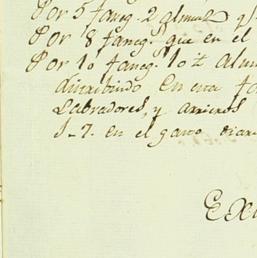 Por 5 faneg. 2 almuz y
Por 8 faneg. que en el
Por 10 faneg. 10½ almu
distribuido en esa fo
Labradores, y arrieros
1-7. en el gasto diar
Ex